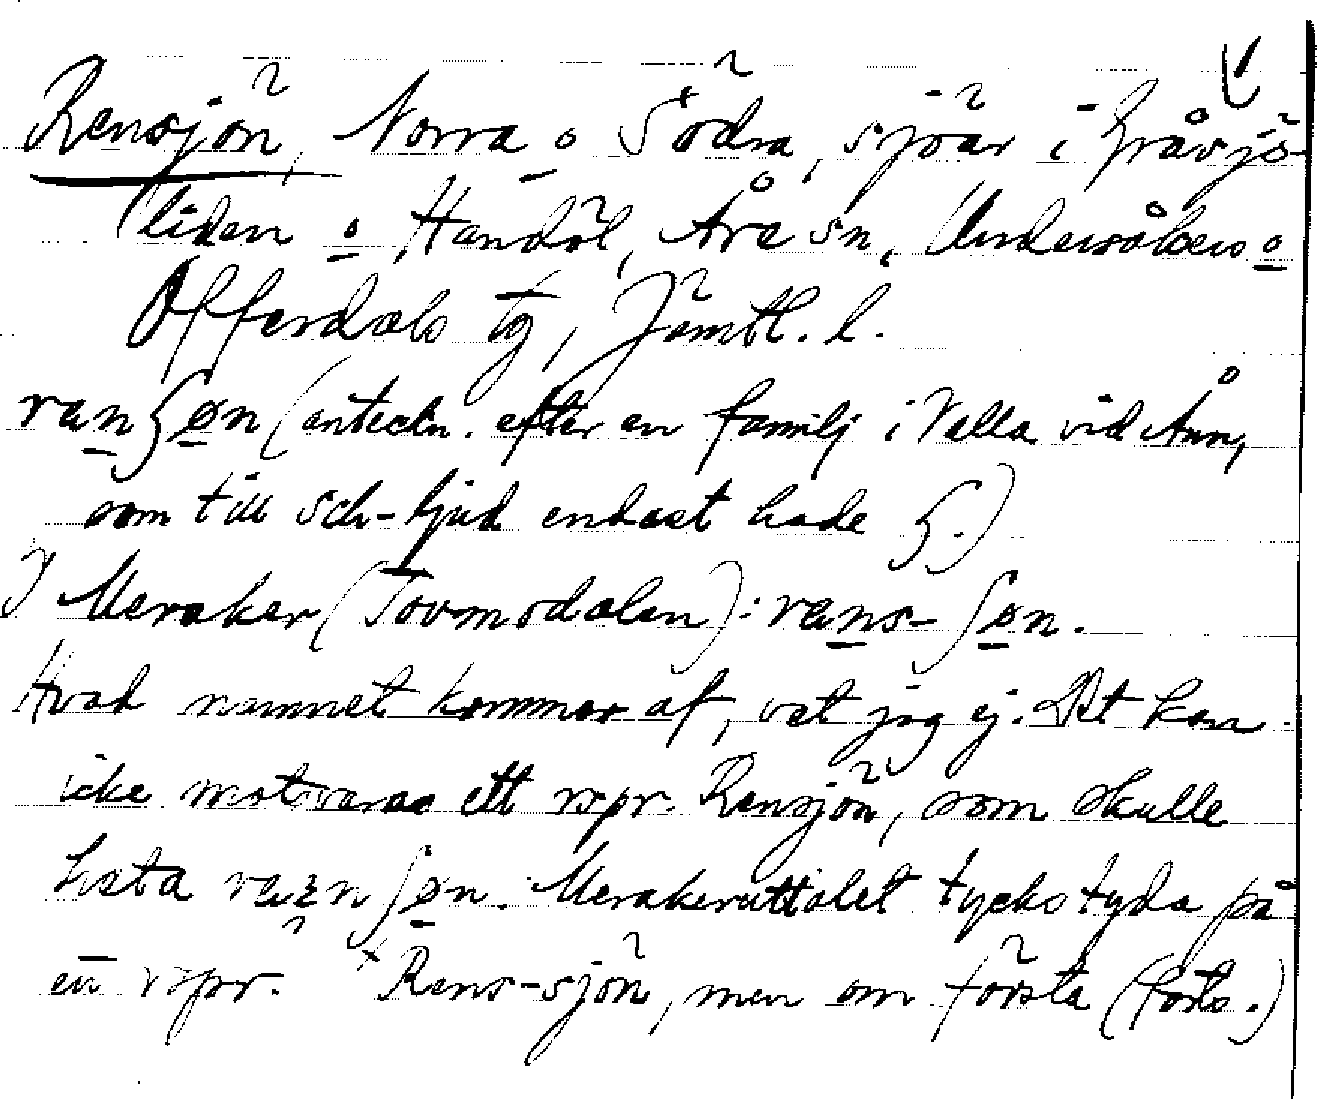 Rensjön, Norra o Södra, sjöar i Gråsjö-
liden o Handöl, Åre sn, Undersåkers o
Offerdals tg, Jämtl. l.
(anteckn. efter en familj i Valla vid Ånn,
som till sch-ljud endast hade ʒ.)
I Meraker (Tovmodalen): rans-ʃøn.
Hvad namnet kommer af, vet jag ej. Det kan
icke motsvara ett rspr. Rensjön, som skulle
heta ʃøn. Merakeruttalet tycks tyda på
en rspr. *Rens-sjön, men om första (forts.)